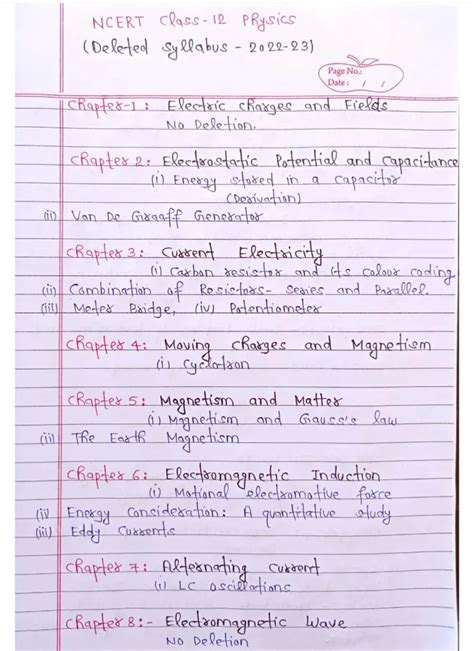 NCERT Class-12 Physics
(Deleted syllabus - 2022-23)
Page No.:
Date: / /
Chapter-1: Electric charges and Fields
No Deletion.
Chapter 2: Electrostatic Potential and Capacitance
(i) Energy stored in a capacitor
(Derivation)
(ii) Van De Graaff Generator
Chapter 3: Current Electricity
(i) Carbon resistor and its colour coding
(ii) Combination of Resistors- series and Parallel.
(iii) Meter Bridge, (iv) Potentiometer
Chapter 4: Moving charges and Magnetism
(i) Cyclotron
Chapter 5: Magnetism and Matter
(i) Magnetism and Gauss's law
(ii) The Earth Magnetism
Chapter 6: Electromagnetic Induction
(i) Motional electromotive force
(ii) Energy Consideration: A quantitative study
(iii) Eddy Currents
Chapter 7: Alternating current
(i) LC oscillations
Chapter 8:- Electromagnetic Wave
No Deletion